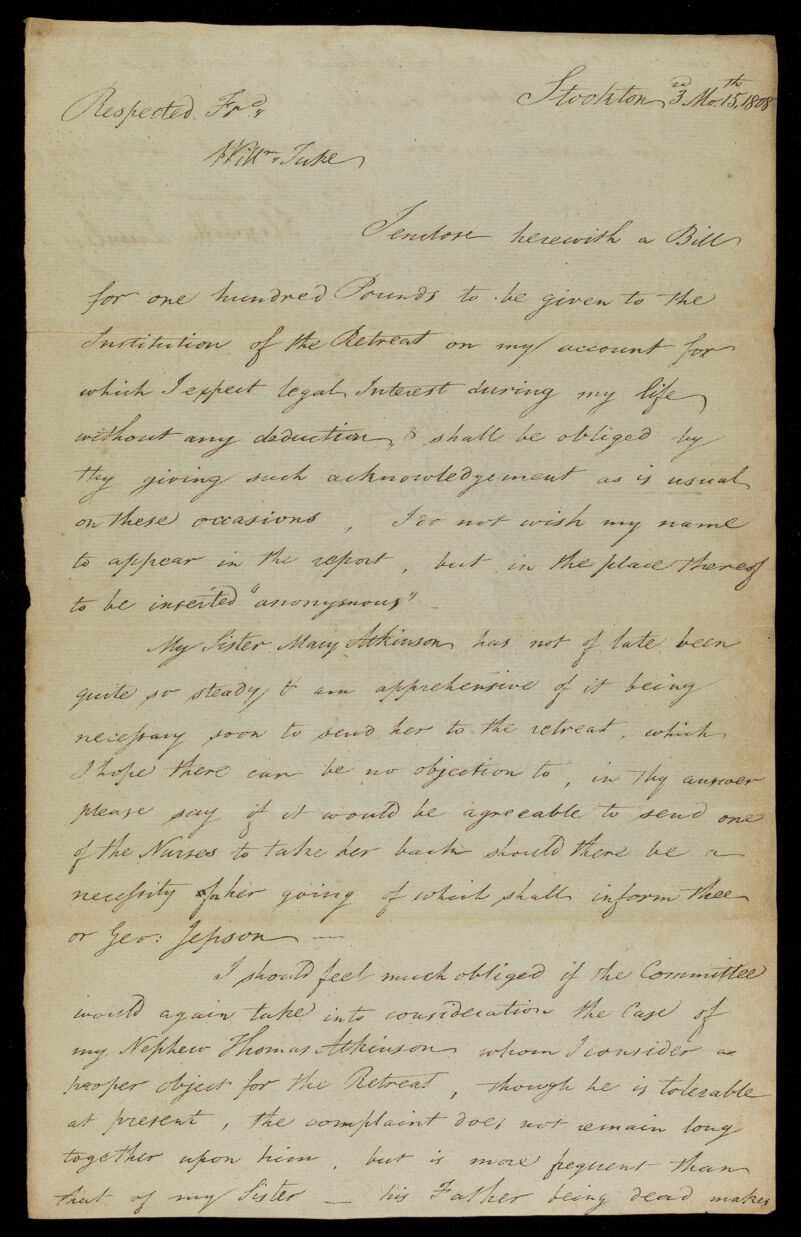 Stockton 3rd Mo. 15th, 1808
Respected Frd,
Willm, Tuke,
I enclose herewith a Bill
for one hundred Pounds to be given to the
Institution of the Retreat on my account for
which I expect legal Interest during my life
without any deduction, & shall be obliged by
thy giving such acknowledgement as is usual
on these occasions, I do not wish my name
to appear in the report, but in the place thereof
to be inserted "anonymous"
My Sister Mary Atkinson has not of late been
quite so steady, & am apprehensive of it being
necessary soon to send her to the retreat, which
I hope there can be no objection to, in thy answer
please say if it would be agreeable to send one
of the Nurses to take her back should there be a
necessity for her going of which shall inform thee
or Geo: Jepson —
I should feel much obliged if the Committee
would again take into consideration the Case of
my Nephew Thomas Atkinson whom I consider a
proper object for the Retreat, though he is tolerable
at present, the complaint does not remain long
together upon him, but is more frequent than
that of my Sister — his Father being dead makes